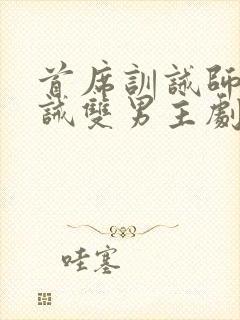 首席訓誡師
誡雙男主劇
哇塞